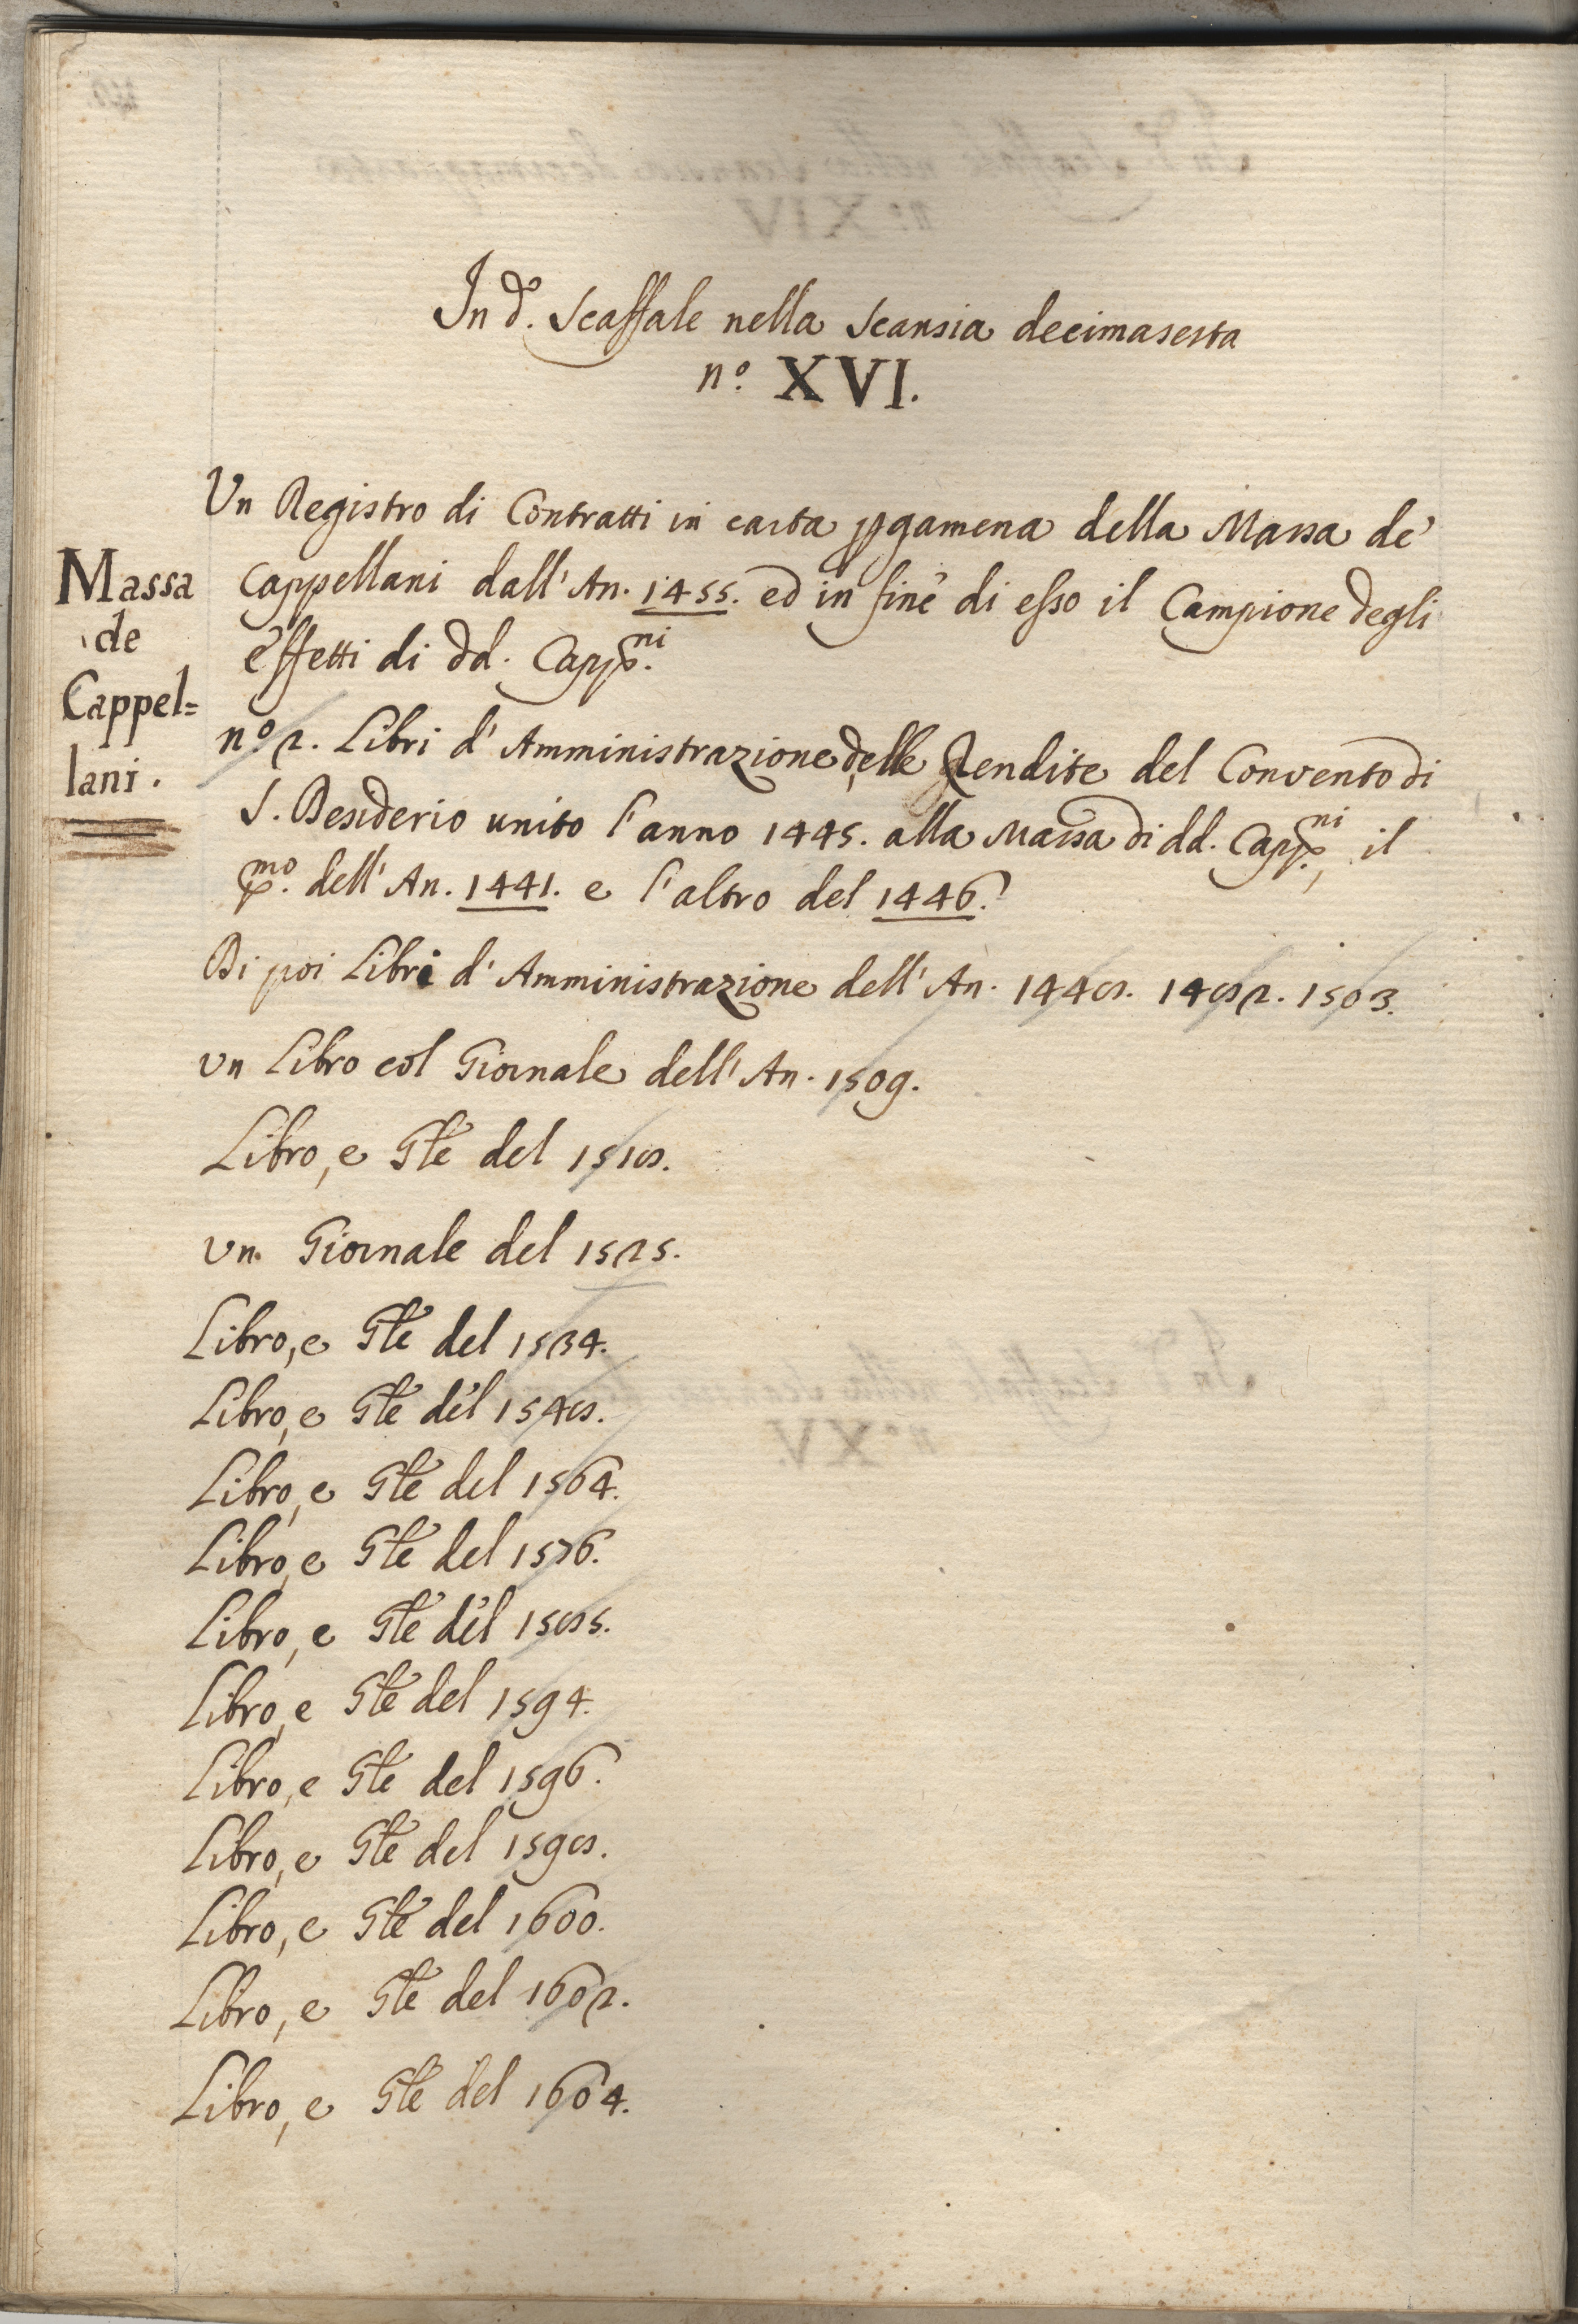 In d.º Scaffale nella Scansia decimasesta
n.º XVI.
Un Registro di Contratti in carta pgamena della Massa de'
Massa
de
Cappel=
lani.
Cappellani dall' An. 1455. ed in fine di esso il Campione degli
effetti di dd. Capp.ni
n.º 2. Libri d' Amministrazione delle Rendite del Convento di
S. Desiderio unito l'anno 1445. alla Massa di dd. Capp.ni, il
p.mo dell' An. 1441. e l'altro del 1446.
Di poi Libri d' Amministrazione dell' An. 1448. 1482. 1503.
Vn Libro col Giornale dell' An. 1509.
Libro, e Gle del 1518.
Vn Giornale del 1525.
Libro, e Gle del 1534.
Libro, e Gle del 1548.
Libro, e Gle del 1564.
Libro, e Gle del 1576.
Libro, e Gle del 1585.
Libro, e Gle del 1594.
Libro, e Gle del 1596.
Libro, e Gle del 1598.
Libro, e Gle del 1600.
Libro, e Gle del 1602.
Libro, e Gle del 1604.